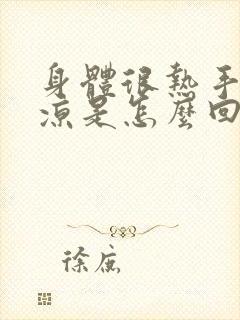 身體很熱手
涼是怎麼回
徐庶